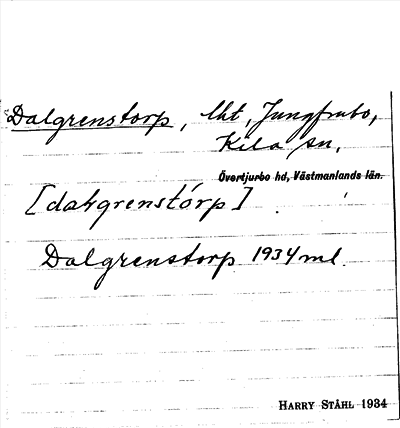 Dalgrenstorp, lht, Jungfrubo,
Kila sn,
Övertjurbo hd, Västmanlands län.
[dalgrenstórp]
Dalgrenstorp 1934 ml.
HARRY STÅHL 1934